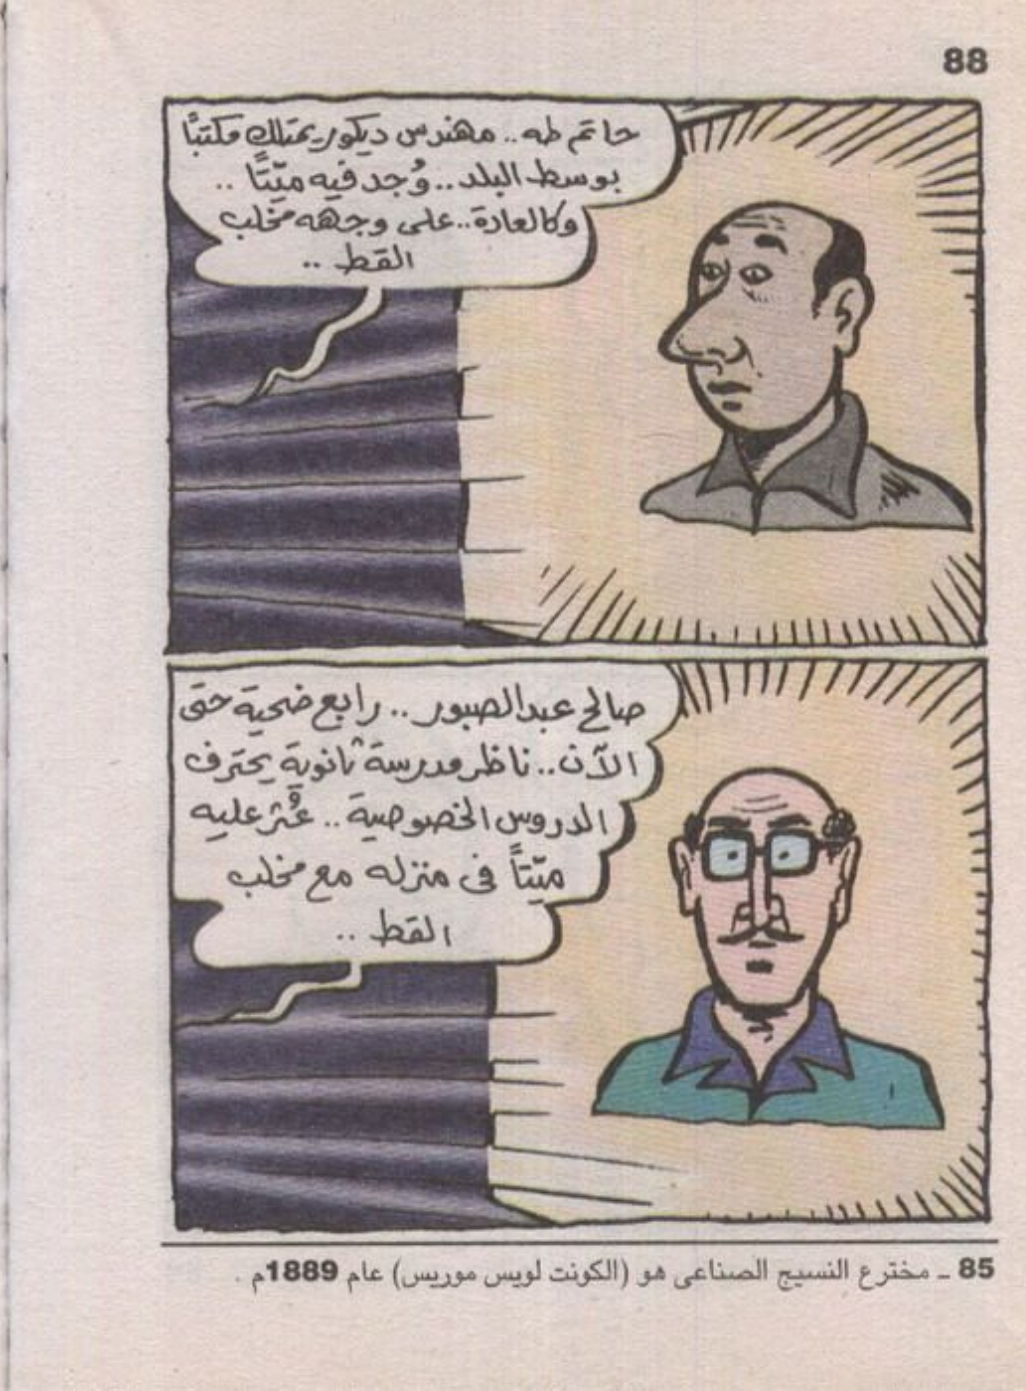 88
حاتم طه.. مهندس ديكور يمتلك مكتبًا
بوسط البلد.. وُجد فيه ميّتًا ..
وكالعادة.. على وجهه مخلب
القط ..
صالح عبدالصبور .. رابع ضحية حتى
الآن.. ناظر مدرسة ثانوية يحترف
الدروس الخصوصية .. عُثر عليه
ميّتاً فى منزله مع مخلب
القط ..
85 ـ مخترع النسيج الصناعى هو (الكونت لويس موريس) عام 1889م .